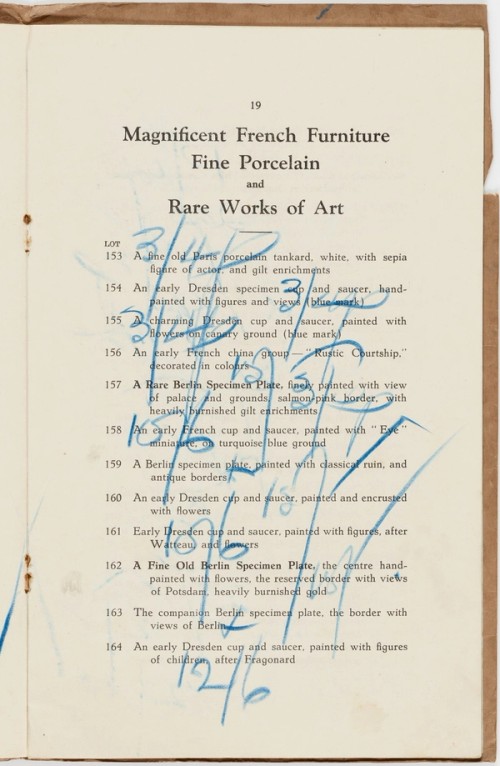 19
Magnificent French Furniture
Fine Porcelain
and
Rare Works of Art
LOT
153 A fine old Paris porcelain tankard, white, with sepia
figure of actor, and gilt enrichments
154 An early Dresden specimen cup and saucer, hand-
painted with figures and views (blue mark)
155 A charming Dresden cup and saucer, painted with
flowers on canary ground (blue mark)
156 An early French china group—"Rustic Courtship,"
decorated in colours
157 A Rare Berlin Specimen Plate, finely painted with view
of palace and grounds, salmon-pink border, with
heavily burnished gilt enrichments
158 An early French cup and saucer, painted with "Eye"
miniature, on turquoise blue ground
159 A Berlin specimen plate, painted with classical ruin, and
antique borders
160 An early Dresden cup and saucer, painted and encrusted
with flowers
161 Early Dresden cup and saucer, painted with figures, after
Watteau, and flowers
162 A Fine Old Berlin Specimen Plate, the centre hand-
painted with flowers, the reserved border with views
of Potsdam, heavily burnished gold
163 The companion Berlin specimen plate, the border with
views of Berlin
164 An early Dresden cup and saucer, painted with figures
of children, after Fragonard
12/6